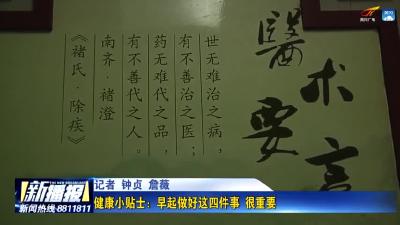 醫术
要言
世无难治之病，
有不善治之医；
药无难代之品，
有不善代之人。
南齐·褚澄
《褚氏·除疾》
新播报
新闻热线·8811811
记者 钟贞 詹薇
健康小贴士：早起做好这四件事 很重要